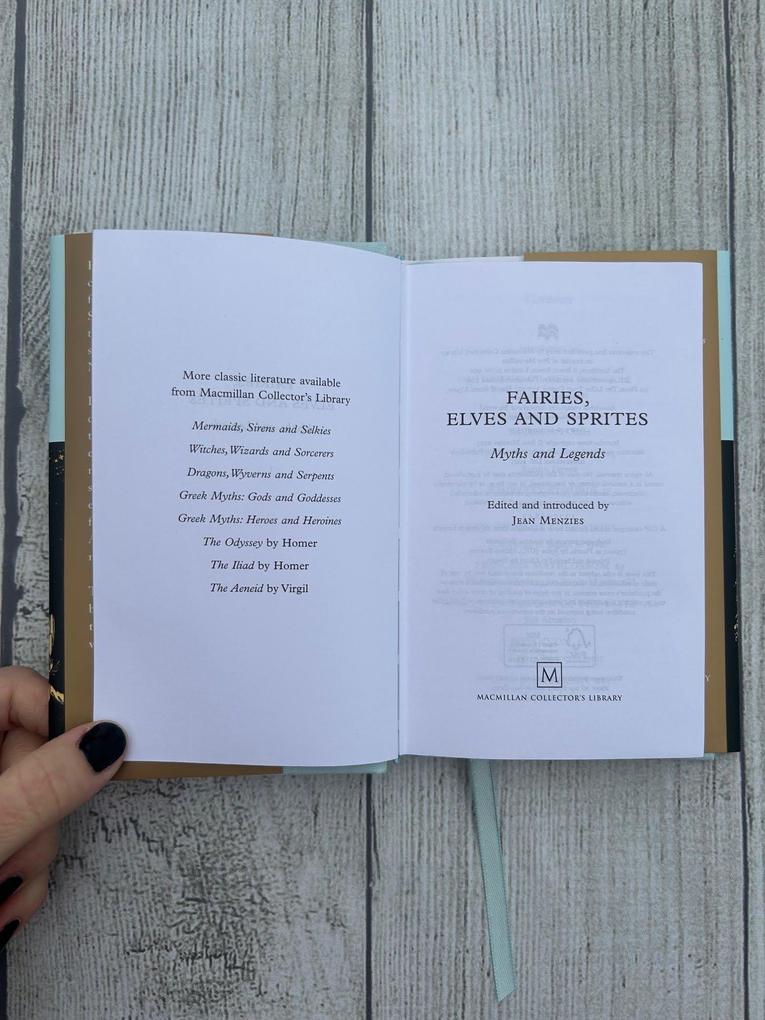 More classic literature available
from Macmillan Collector's Library
Mermaids, Sirens and Selkies
Witches, Wizards and Sorcerers
Dragons, Wyverns and Serpents
Greek Myths: Gods and Goddesses
Greek Myths: Heroes and Heroines
The Odyssey by Homer
The Iliad by Homer
The Aeneid by Virgil
FAIRIES,
ELVES AND SPRITES
Myths and Legends
Edited and introduced by
JEAN MENZIES
M
MACMILLAN COLLECTOR'S LIBRARY